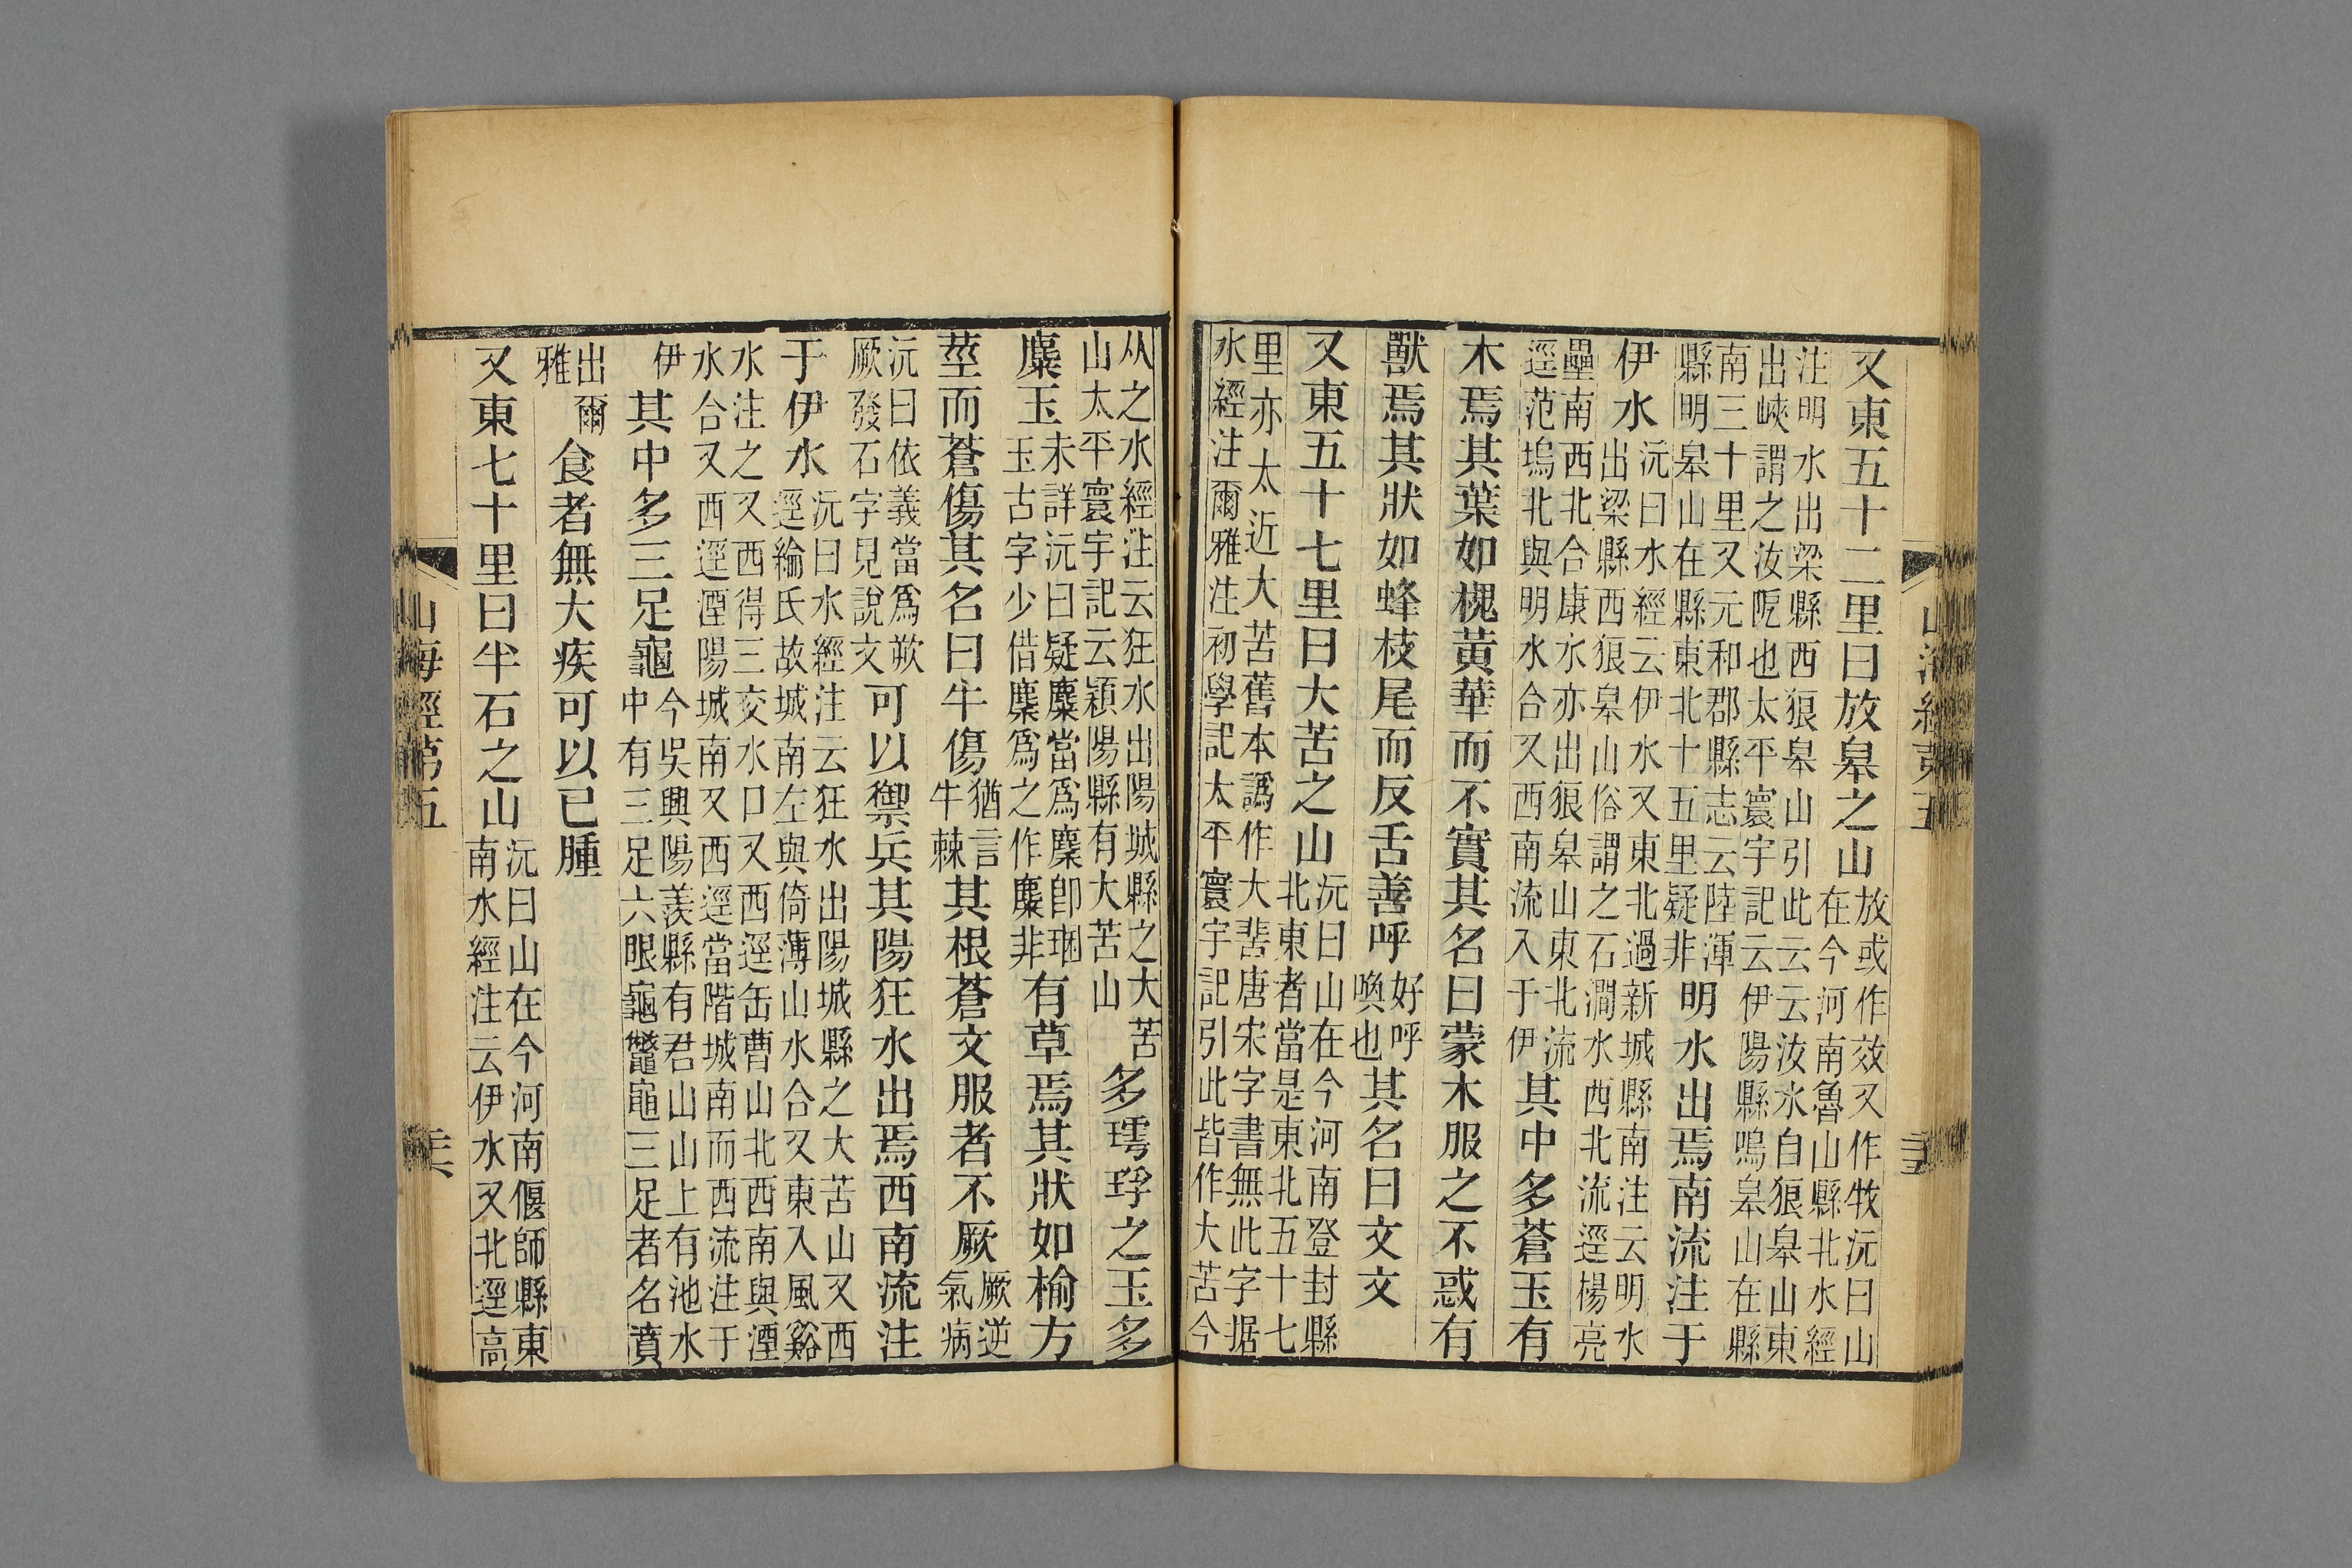 又東五十二里曰放皋之山放或作效又作牧沅曰山在今河南魯山縣北水經
注明水出梁縣西狼皋山引此云云汝水自狼皋山東出峽謂之汝阨也太平寰宇記云伊陽縣鳴皋山在縣
南三十里又元和郡縣志云陸渾縣明皋山在縣東北十五里疑非明水出焉南流注于
伊水沅曰水經云伊水又東北過新城縣南注云明水出梁縣西狼皋山俗謂之石澗水西北流逕楊亮
壘南西北合康水亦出狼皋山東北流逕范塢北與明水合又西南流入于伊其中多蒼玉有
木焉其葉如槐黃華而不實其名曰蒙木服之不惑有
獸焉其狀如蜂枝尾而反舌善呼好呼喚也其名曰文文
又東五十七里曰大苦之山沅曰山在今河南登封縣北東者當是東北五十七
里亦太近大苦舊本譌作大唐宋字書無此字据水經注爾雅注初學記太平寰宇記引此皆作大苦今
从之水經注云狂水出陽城縣之大苦山太平寰宇記云潁陽縣有大苦山多㻬琈之玉多
麋玉未詳沅曰疑麋當爲麋卽瑂玉古字少借麋爲之作麋非有草焉其狀如榆方
莖而蒼傷其名曰牛傷猶言牛棘其根蒼文服者不厥厥逆氣病
沅曰依義當爲欮厥發石字見說文可以禦兵其陽狂水出焉西南流注
于伊水沅曰水經注云狂水出陽城縣之大苦山又西逕綸氏故城南左與倚薄山水合又東入風谿
水注之又西得三交水口又西逕缶曹山北西南與湮水合又西逕湮陽城南又西逕當階城南而西流注于
伊其中多三足龜今吳興陽羨縣有君山山上有池水中有三足六眼龜鼈龜三足者名賁
出爾雅食者無大疾可以已腫
又東七十里曰半石之山沅曰山在今河南偃師縣東南水經注云伊水又北逕高
山海經第五